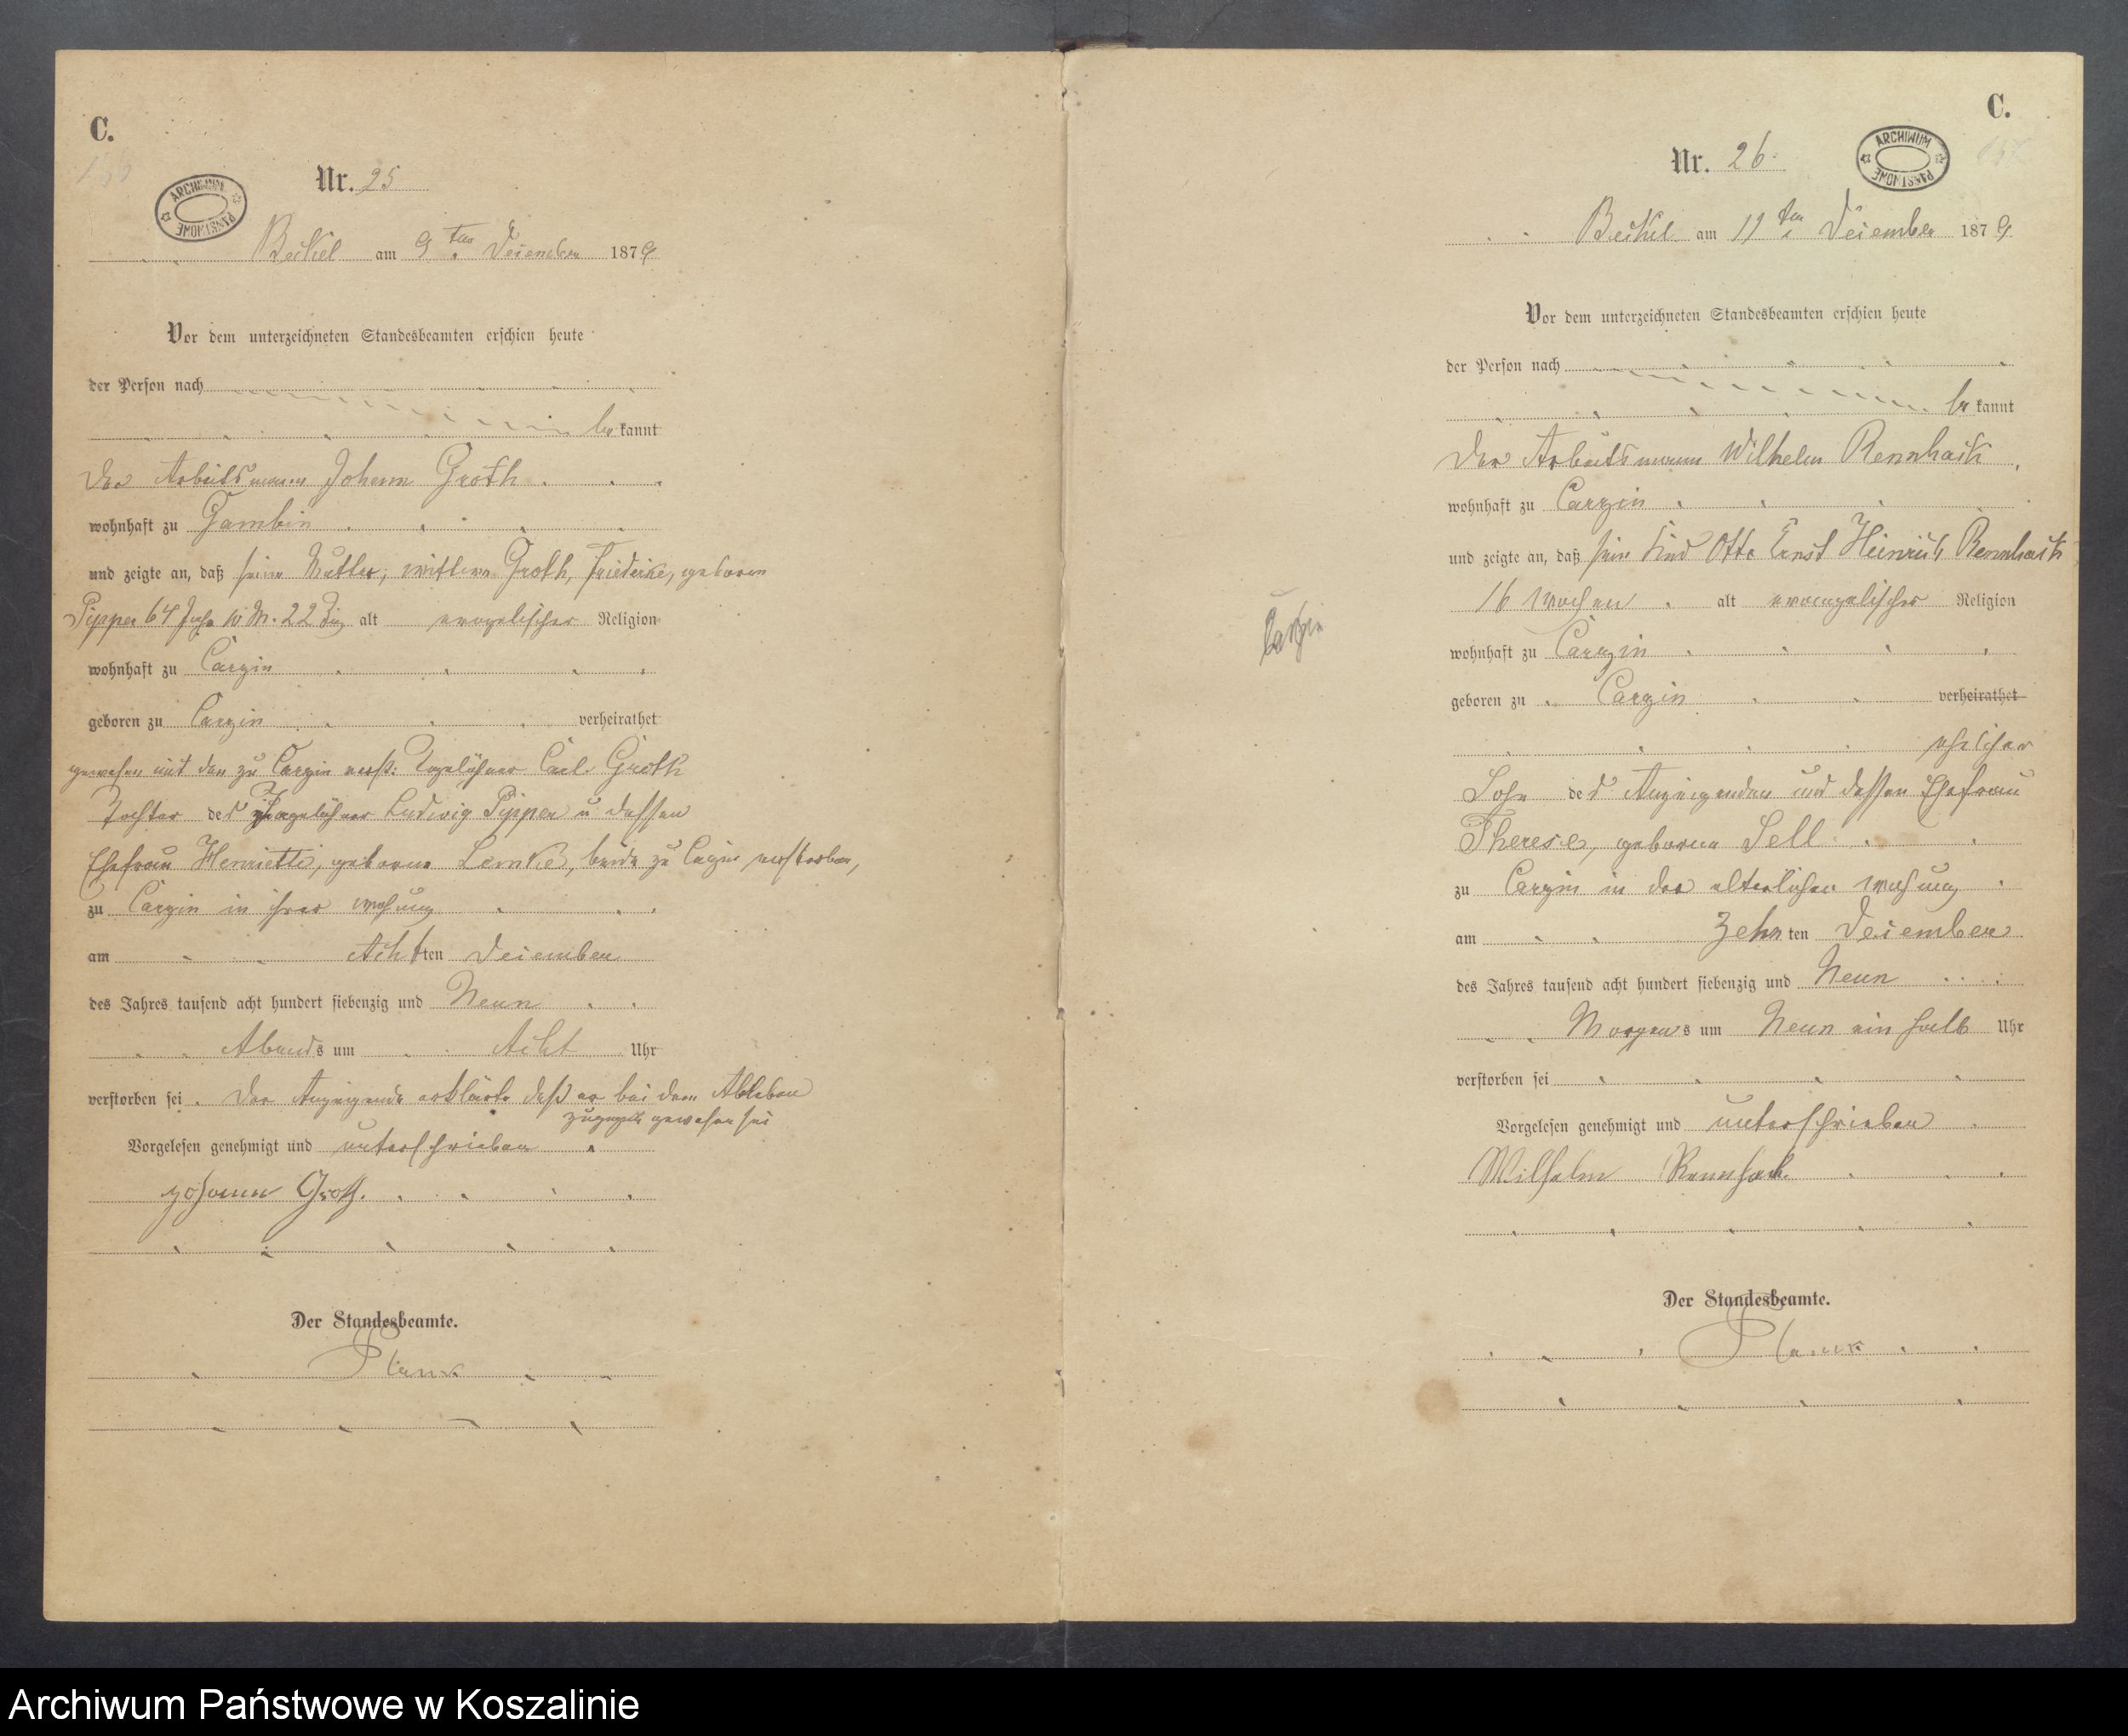 C.
ARCHIWUM PAŃSTWOWE
Nr. 25
Beckel am 9ten Deiember 1879
Vor dem unterzeichneten Standesbeamten erschien heute
der Person nach
be kannt
Der Arbeitsmann Johann Groth
wohnhaft zu Gambin
und zeigte an, daß seine Mutter, wittwe Groth, Friederike, geborene
Pipper 64 Jahr 10 M. 22 alt evangelischer Religion
wohnhaft zu Carzin
geboren zu Carzin verheirathet
gewesen mit dem zu Carzin verst: Tagelöhner Carl Groth
Tochter des Tagelöhner Ludwig Pipper u dessen
Ehefrau Henriette, geborene Lemke, beide zu Carzin verstorben,
zu Carzin in ihrer Wohnung
am Achtten Deiember
des Jahres tausend acht hundert siebenzig und Neun
Abends um Acht Uhr
verstorben sei. Der Anzeigende erklärte daß er bei dem Ableben
zugegen gewesen sei
Vorgelesen genehmigt und unterschrieben
Johann Groth.
Der Standesbeamte.
Plank
C.
ARCHIWUM PAŃSTWOWE
Nr. 26
Beckel am 11ten Deiember 1879
Vor dem unterzeichneten Standesbeamten erschien heute
der Person nach
be kannt
Der Arbeitsmann Wilhelm Rennhack
wohnhaft zu Carzin
und zeigte an, daß sein Kind Otto Ernst Heinrich Rennhack
16 Wochen alt evangelischer Religion
Carzin
wohnhaft zu Carzin
geboren zu Carzin verheirathet
ehelicher
Sohn des Anzeigenden und dessen Ehefrau
Therese, geborene Sell
zu Carzin in der elterlichen Wohnung
am Zehnten Deiember
des Jahres tausend acht hundert siebenzig und Neun
Morgens um Neun ein halb Uhr
verstorben sei
Vorgelesen genehmigt und unterschrieben
Wilhelm Rennhack.
Der Standesbeamte.
Plank
Archiwum Państwowe w Koszalinie